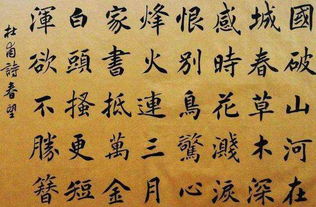 國破山河在
城春草木深
感時花濺淚
恨別鳥驚心
烽火連三月
家書抵萬金
白頭搔更短
渾欲不勝簪
杜甫詩春望